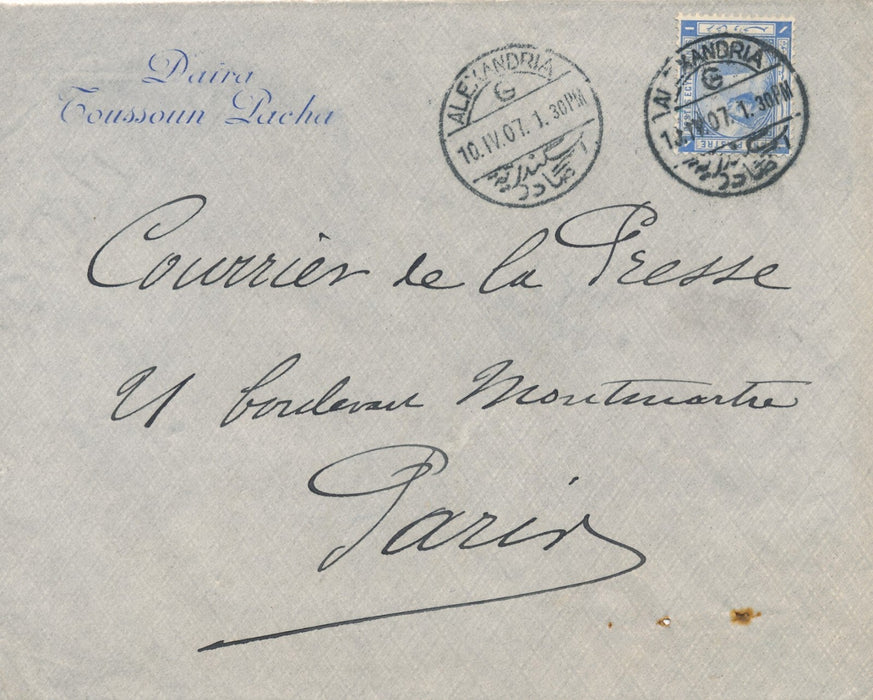 Daira
Toussoun Pacha
ALEXANDRIA
G
10.IV.07. 1.30PM
اسكندرية
ALEXANDRIA
G
10.IV.07. 1.30PM
Courrier de la Presse
21 boulevard Montmartre
Paris